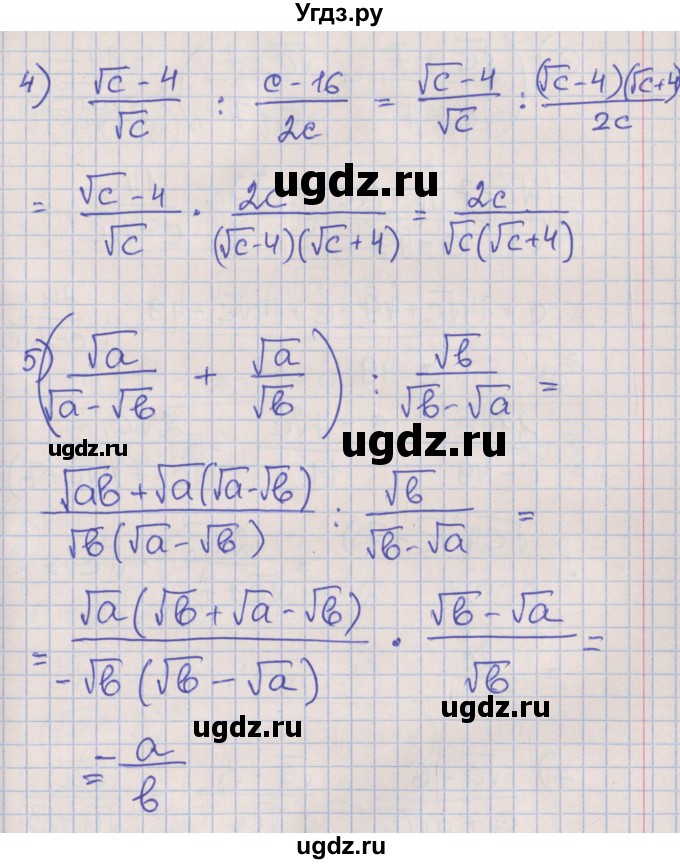 Угдз.ру
4) (√c - 4)/√c : (c - 16)/2c = (√c - 4)/√c : (√c - 4)(√c + 4)/2c
= (√c - 4)/√c · 2c/(√c - 4)(√c + 4) = 2c/√c(√c + 4)
ugdz.ru
5) (√a/(√a - √b) + √a/√b) : √b/(√b - √a) =
ugdz.ru
ugdz.ru
(√ab + √a(√a - √b))/√b(√a - √b) : √b/(√b - √a) =
= √a(√b + √a - √b)/-√b(√b - √a) · (√b - √a)/√b =
ugdz.ru
ugdz.ru
= -a/b
ugdz.ru